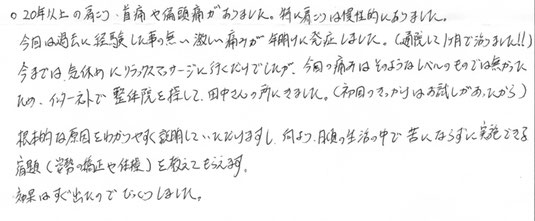 ○20年以上の肩こり・首痛や偏頭痛がありました。特に肩こりは慢性的にありました。
今回は過去に経験した事の無い激しい痛みが年明けに発症しました。(通院して1ヶ月で治りました!!)
今までは気休めにリラックスマッサージに行くだけでしたが、今回の痛みはそのようなレベルのものでは無かった
ため、インターネットで整体院を探して、田中さんの所にきました。(初回のきっかけはお試しがあったから)
根本的な原因をわかりやすく説明していただけますし、何より日頃の生活の中で苦にならずに実施できる
宿題(姿勢の矯正や体操)を教えてもらえます。
効果はすぐ出たのでびっくりしました。